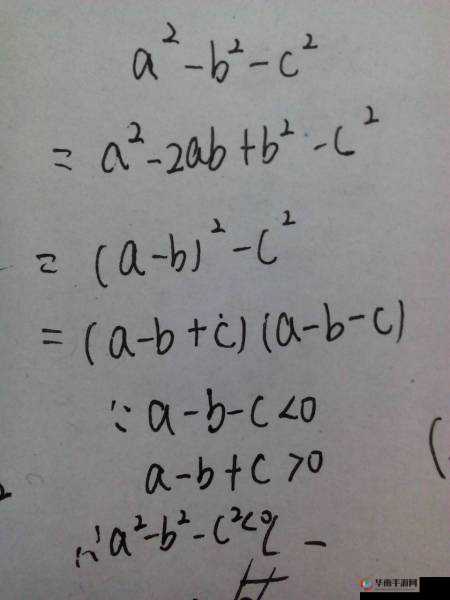 a²-b²-c²
= a²-2ab+b²-c²
= (a-b)²-c²
= (a-b+c)(a-b-c)
∵ a-b-c<0
a-b+c>0
∴ a²-b²-c²<0
华南手游网